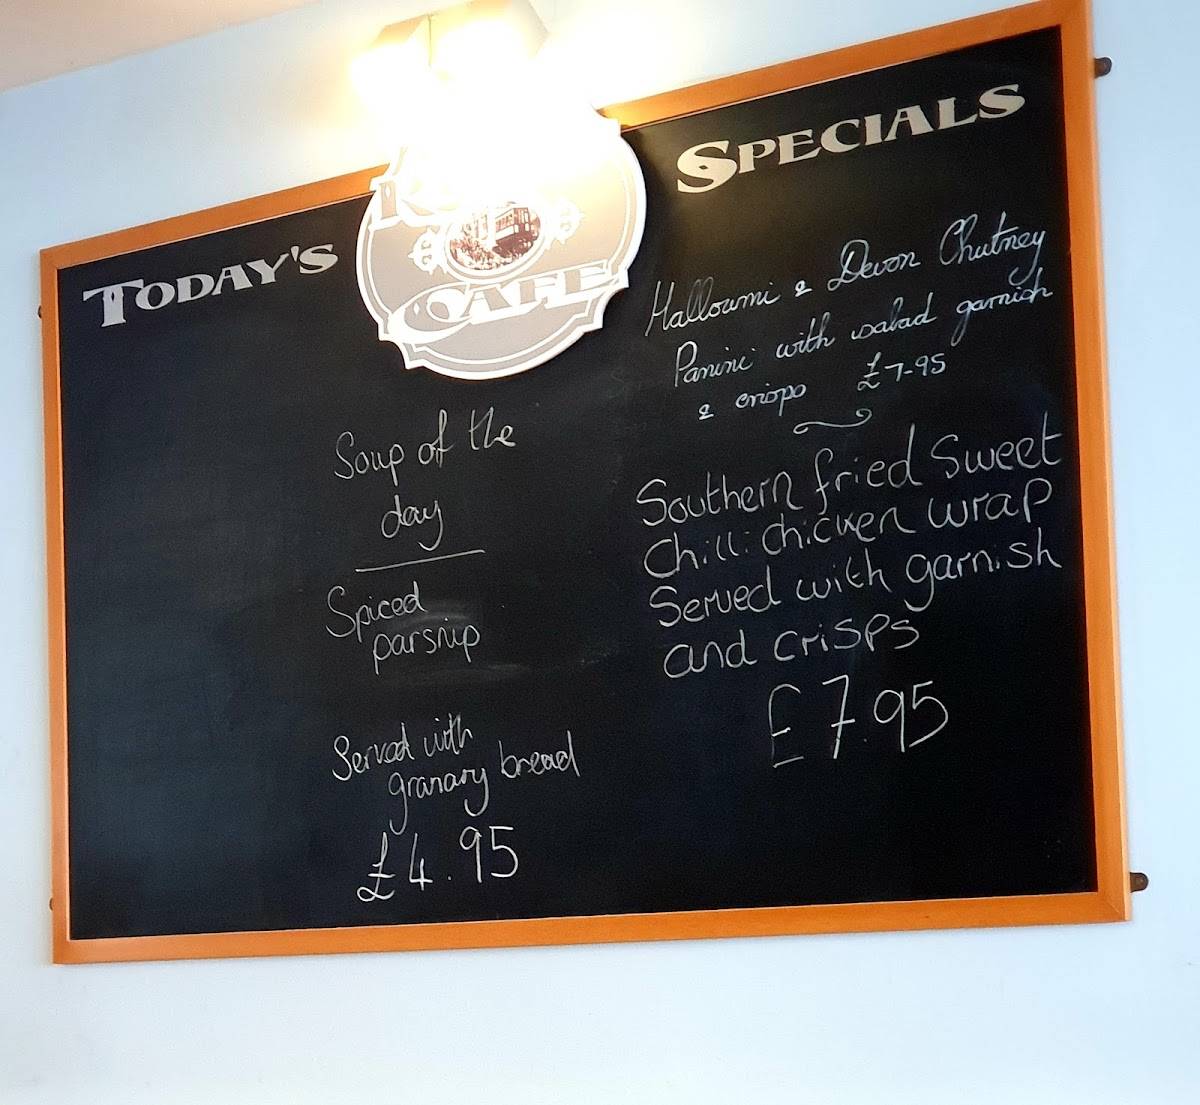 TODAY'S
SPECIALS
CAFE
Soup of the
day
Spiced
parsnip
Served with
granary bread
£4.95
Halloumi & Devon Chutney
Panini with salad garnish
& crisps £7-95
Southern fried sweet
Chilli chicken wrap
Served with garnish
and crisps
£7.95